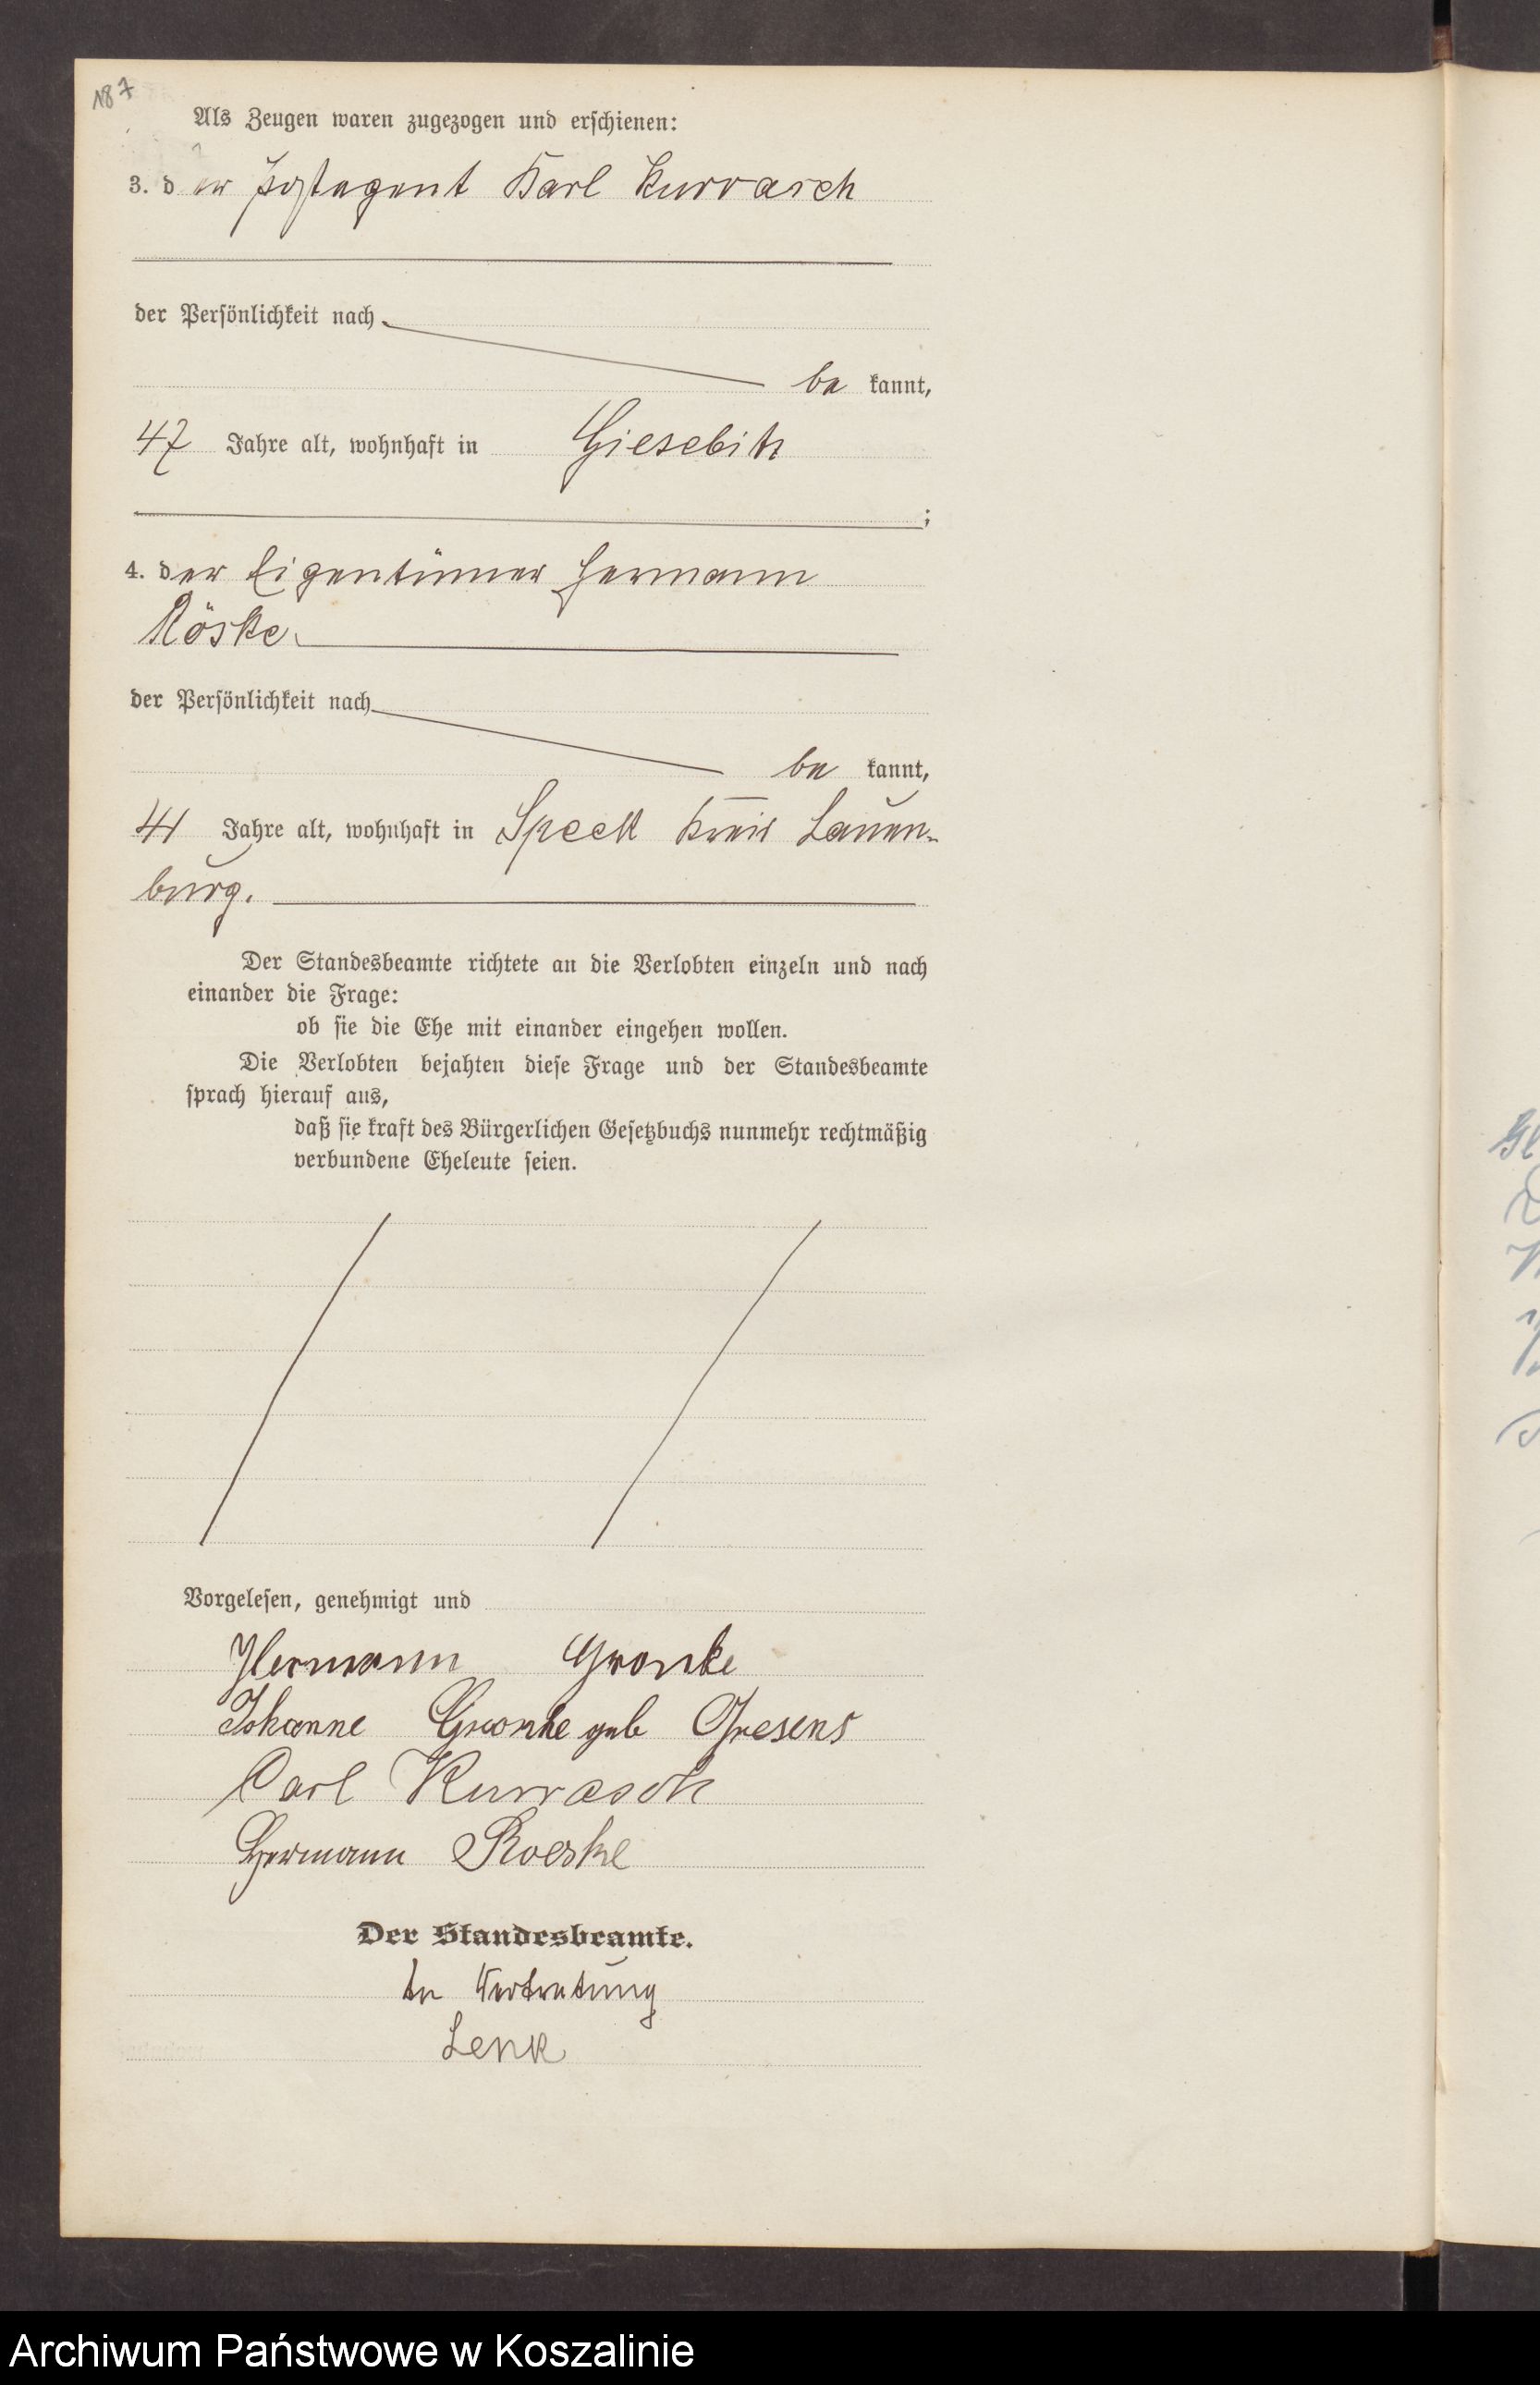 187
Als Zeugen waren zugezogen und erschienen:
3. der Postagent Karl Kurrasch
der Persönlichkeit nach
be kannt,
47 Jahre alt, wohnhaft in Giesebitz
;
4. der Eigentümer Hermann
Röske
der Persönlichkeit nach
be kannt,
41 Jahre alt, wohnhaft in Speck Kreis Lauen-
burg.
Der Standesbeamte richtete an die Verlobten einzeln und nach
einander die Frage:
ob sie die Ehe mit einander eingehen wollen.
Die Verlobten bejahten diese Frage und der Standesbeamte
sprach hierauf aus,
daß sie kraft des Bürgerlichen Gesetzbuchs nunmehr rechtmäßig
verbundene Eheleute seien.
Vorgelesen, genehmigt und
Hermann Gronke
Johanne Gronke geb Gresens
Carl Kurrasch
Hermann Roeske
Der Standesbeamte.
In Vertretung
Lenk
Archiwum Państwowe w Koszalinie